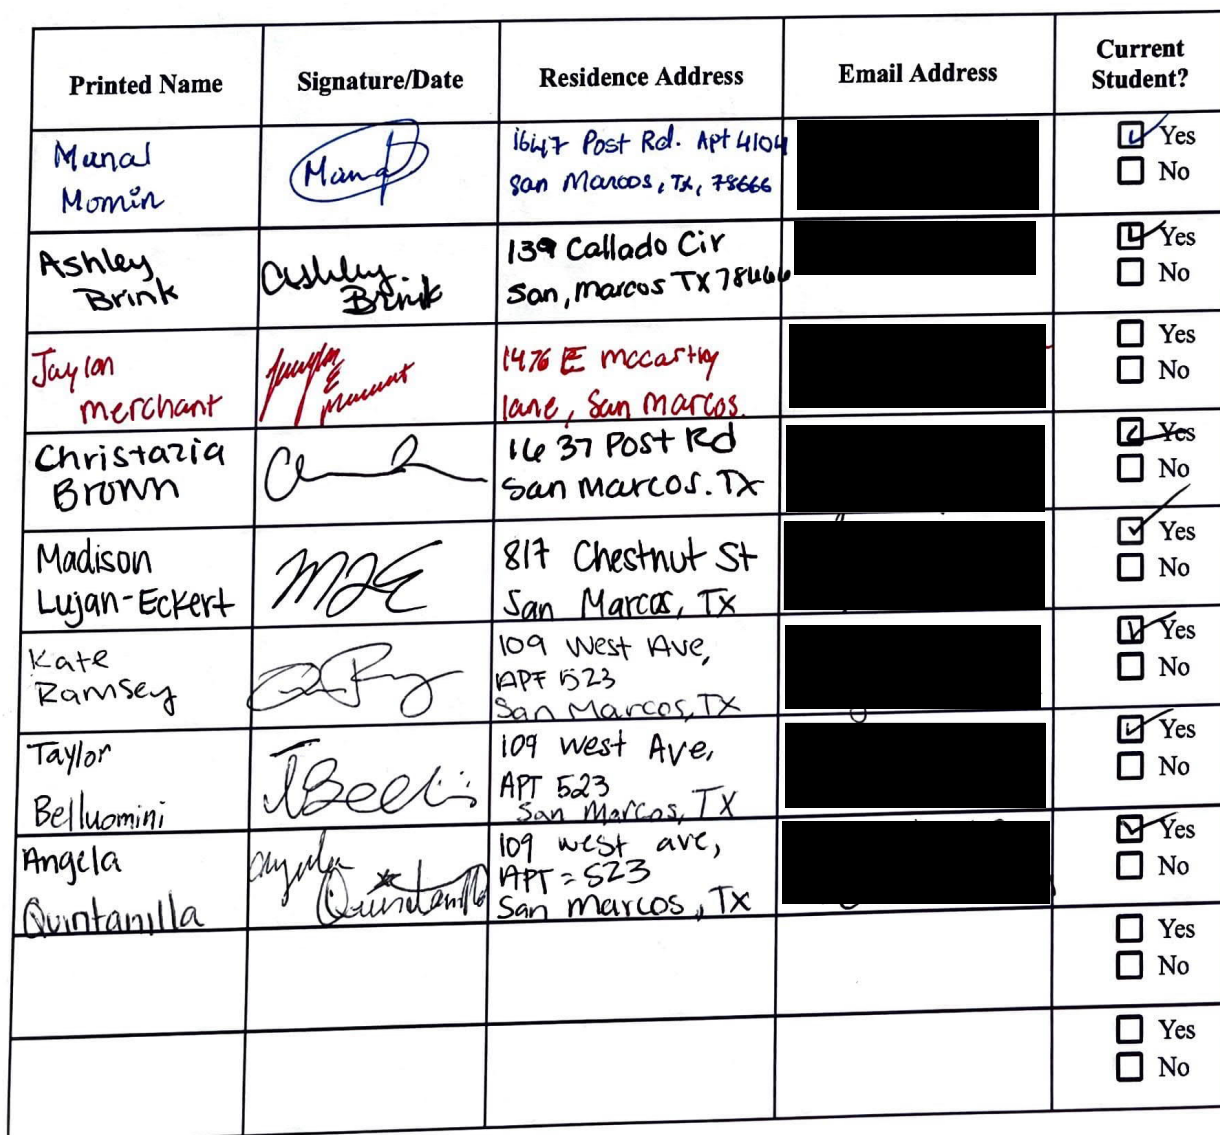 Printed Name
Signature/Date
Residence Address
Email Address
Current
Student?
Manal
Momin
Manal
1647 Post Rd. Apt 4104
San Marcos, Tx, 78666
Yes
No
Ashley
Brink
Ashley
Brink
139 Callado Cir
San, Marcos TX 78666
Yes
No
Jaylon
merchant
1476 E mccarthy
lane, San Marcos.
Yes
No
Christazia
Brown
1637 Post Rd
San marcos. Tx
Yes
No
Madison
Lujan-Eckert
MLE
817 Chestnut St
San Marcos, Tx
Yes
No
Kate
Ramsey
109 West Ave,
APT 523
San Marcos, TX
Yes
No
Taylor
Belluomini
109 west Ave,
APT 523
San Marcos, TX
Yes
No
Angela
Quintanilla
Angela
Quintanilla
109 west ave,
APT = 523
San marcos, TX
Yes
No
Yes
No
Yes
No